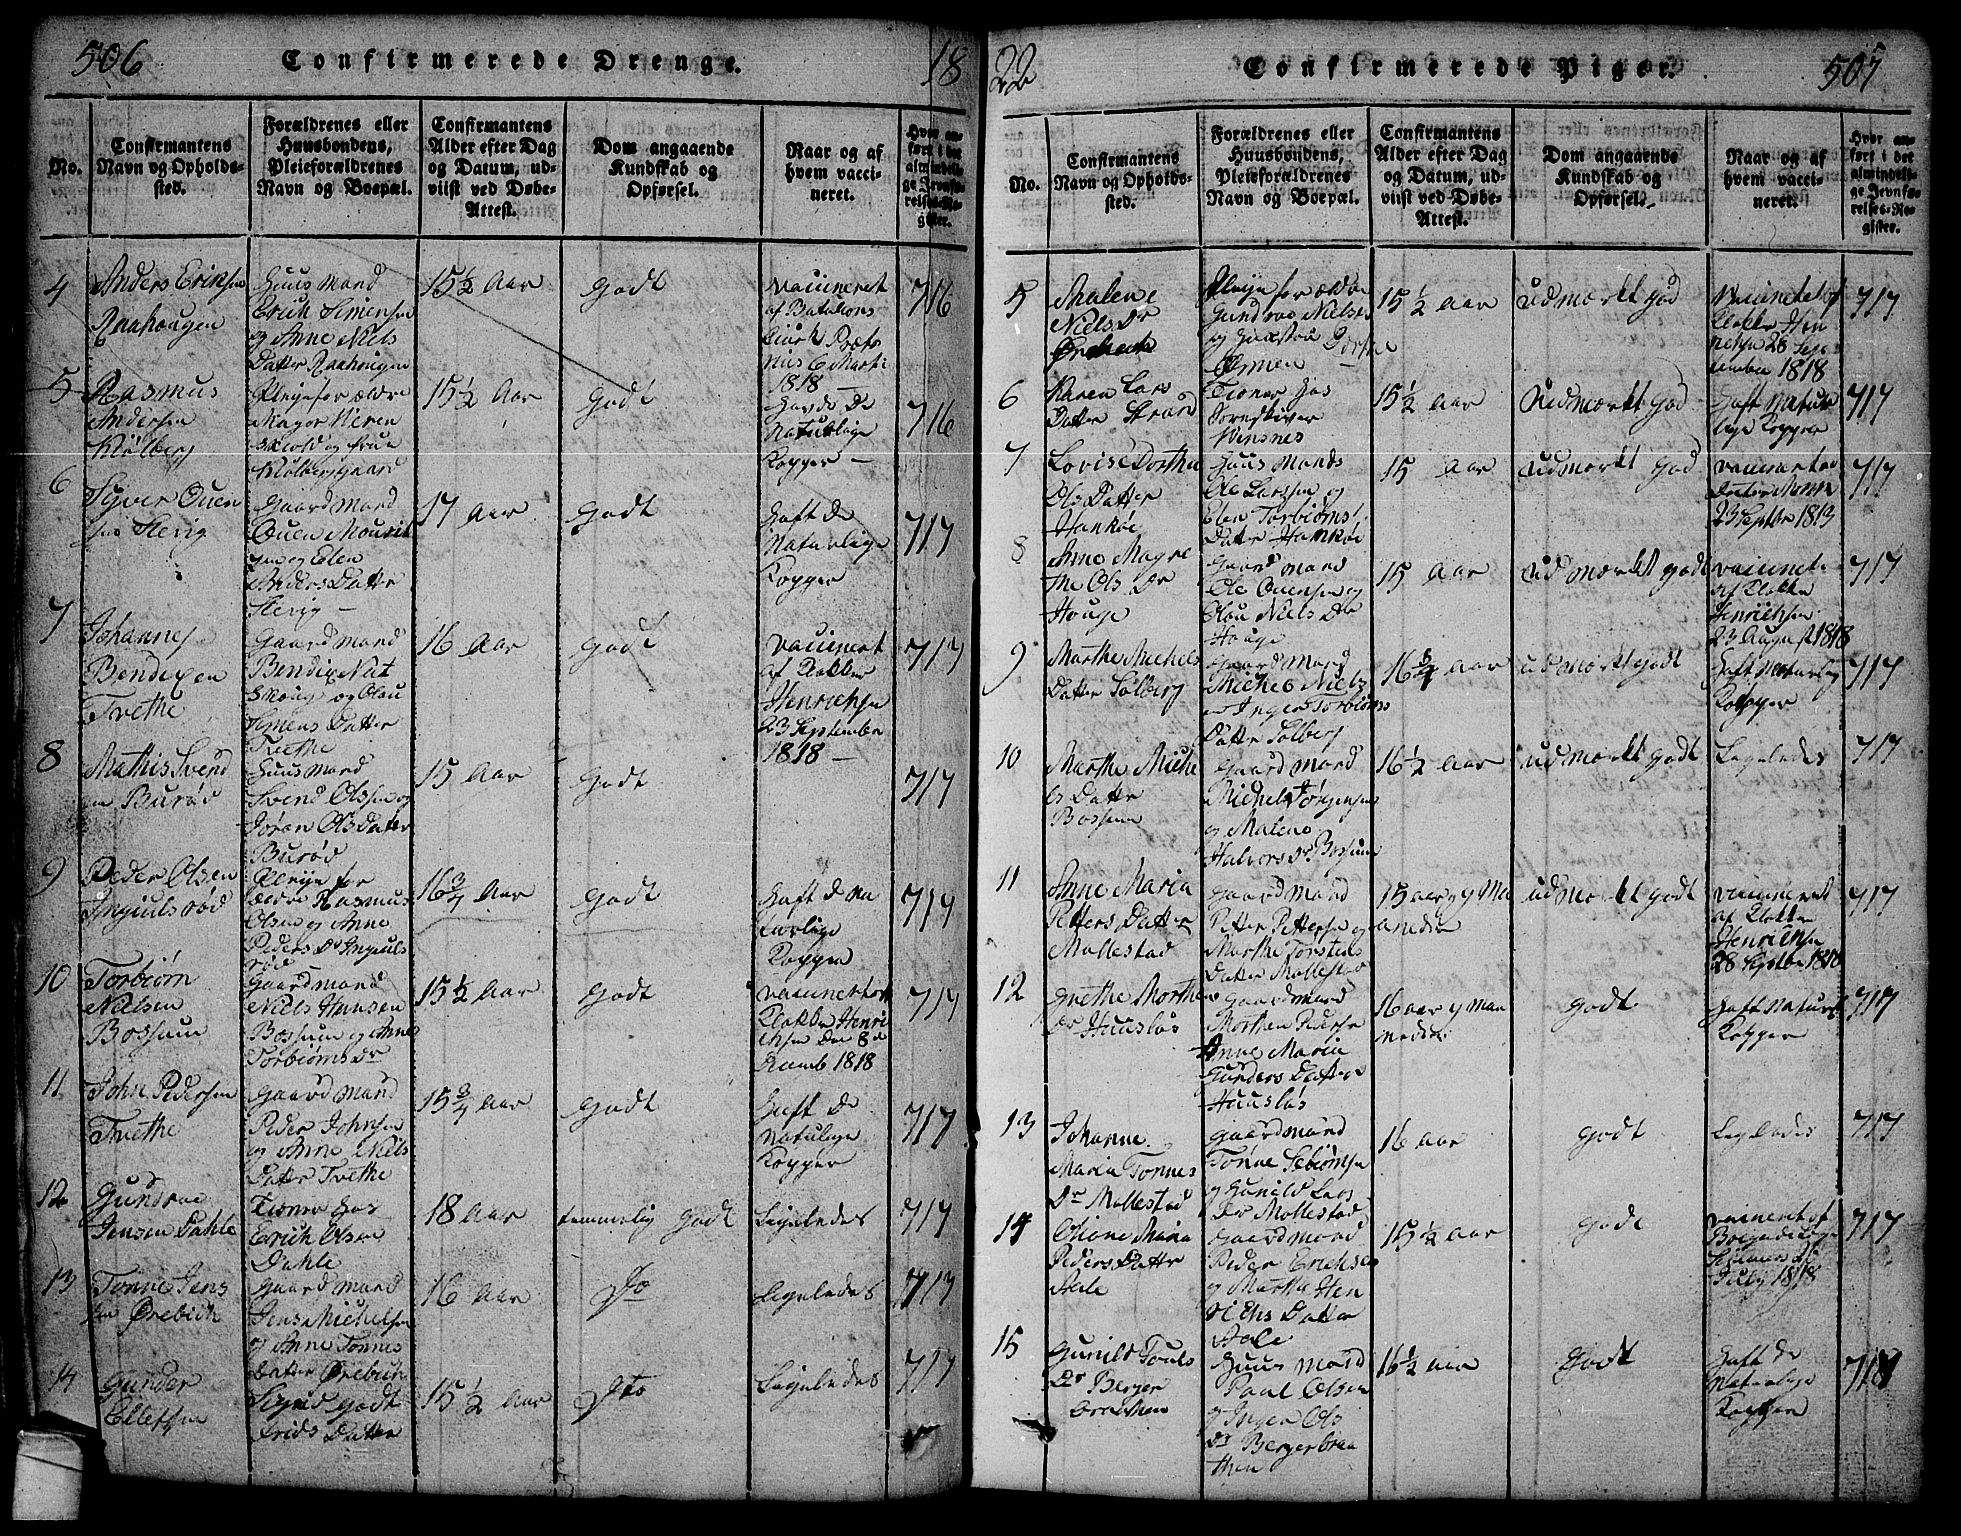 506 Confirmerede Drenge. 18
No.
Confirmantens Navn og Opholds-sted.
Forældrenes eller Huusbondens, Pleieforældrenes Navn og Boepæl.
Confirmantens Alder efter Dag og Datum, ud-viist ved Døbe-Attest.
Dom angaaende Kundskab og Opførsel.
Naar og af hvem vacci-neret.
Hvor an-ført i det almindeli-ge Jevnfø-relses-Re-gister.
4
Anders Eriksen
Raahougen
Huus Mand
Erich Simensen
og Anne Niels
Datter Raahougen
15 1/2 Aar
Godt
Vaccineret
af Batalions
1818 —
716
5
Rasmus
Andersen
Kiølberg
Pleyeforældre
Major Weren
skiold og Frue
Kiølbergsgaard
15 1/2 Aar
Godt
Havde De
Naturlige
Kopper —
716
6
Syver Ouen
sen Slevig
Gaard Mand
Ouen Mourit
sen og Elen
Anders Datter
Slevig —
17 Aar
Godt
Haft De
Naturlige
Kopper
717
7
Johannes
Bendixen
Tvethe
Gaard Mand
Bendix Nat
Skoug og Olau
Simens Datter
Tvethe
16 Aar
Godt
Vaccineret
af Klokker
Henrichsen
23 September
1818 —
717
8
Mathis Svend
sen Burød
Huus Mand
Svend Olssen og
Jøran Ols Datter
Burød
15 Aar
Godt
717
9
Peder Olsen
Ingiulsrød
Pleyefor
ældre Rasmus
Olsen og Anne
Peders Dr Ingiuls
rød
16 3/4 Aar
Godt
Haft De Na
turlige
Kopper
717
10
Torbiørn
Nielsen
Bossum
Gaard Mand
Niels Hansen
Bossum og Anne
Torbiørns Dr
15 1/2 Aar
Godt
Vaccineret af
Klokker Henri
chsen Den 8 De
cemb 1818
717
11
John Pedersen
Tvethe
Gaard Mand
Peder Johnsen
og Anne Niels
Datter Tvethe
15 3/4 Aar
Godt
Haft De
Natulige
Kopper
717
12
Gundroe
Jensen Dahle
Tiener Hos
Erich Olsen
Dahle
18 Aar
temmelig Godt
Ligeledes
717
13
Tonne Jens
sen Ørebich
Gaard Mand
Jens Michelsen
og Anne Tonnes
Datter Ørebich
16 Aar
Do
Ligeledes
717
14
Gunder
Ellefsen
Sigrid Godt
frids Datter
15 1/2 Aar
Dto
Ligeledes
717
22 Confirmerede Piger. 507
No.
Confirmantens Navn og Opholds-sted.
Forældrenes eller Huusbondens, Pleieforældrenes Navn og Boepæl.
Confirmantens Alder efter Dag og Datum, ud-viist ved Døbe-Attest.
Dom angaaende Kundskab og Opførsel.
Naar og af hvem vacci-neret.
Hvor an-ført i det almindeli-ge Jevnfø-relses-Re-gister.
5
Malene
Niels Dr
Pleyeforældre
Gundroe Nielsen
og
15 1/2 Aar
udmærkt God
Vaccineret af
Klokker Hen
richsen 28 Sep
tember 1818
717
6
Karen Lars
Datter Strand
Tiener Hos
Sorenskiver
Wensnes
15 1/2 Aar
Udmærkt God
Haft Natur
lige Kopper
717
7
Lovise Dorthea
Ols Datter
Hankøe
Huus Mands
Ole Larssen og
Elen Torbiørns
Datter Hankøe
15 Aar
udmærkt God
Vaccineret af
Doctor
23 Septbr 1819
717
8
Anne Magre
the Ols Dr
Houge
Gaard Mand
Ole Ouensen og
Olau Niels Dr
Houge
15 Aar
udmærkt godt
Vaccineret
af Klokker
Henrichsen
23 August 1818
717
9
Marthe Michels
Datter Solberg
Gaard Mand
Michel Niels
en Inger Torbiørns
Datter Solberg
16 3/4 Aar
udmærkt godt
Haft Naturlig
Kopper
717
10
Marthe Miche
ls Datter
Bossum
Gaard Mand
Michel Jørgensen
og Malene
Halvors Dr Bossum
16 1/2 Aar
udmærkt godt
Ligeledes
717
11
Anne Maria
Petters Datter
Mollestad
Gaard Mand
Petter Pettersen og
Marthe Torsteds
Datter Mollestad
15 aar 7 Ma
aneder
udmærkt godt
Vaccineret
af Klokker
Henrichsen
28 Septbr 1818
717
12
Grethe Morthens
Dr Huusløs
Gaard Mand
Morthen Pedersen
Anne Maria
Gunders Datter
Huusløs
16 aar 7 Maa
neder
Godt
Haft Naturl
Kopper
717
13
Johanne
Maria Tonnes
Dr Mollestad
Gaard Mand
Tønne Sebiørnsen
og Gunild Lars
Der Mollestad
16 aar
Godt
Ligeledes
717
14
Oliane Maria
Peders Datter
Aale
Gaard Mand
Peder Erichsen
og Martha Hen
richs Datter
Aale
15 1/2 Aar
Godt
Vaccineret af
July 1818
717
15
Gunild Pouls
Dr Berger
braathen
Huus Mand
Paul Olsen
og Inger Ols
Dr Bergerbraa
then
16 1/2 Aar
Godt
Haft de
Naturlige
Kopper
718